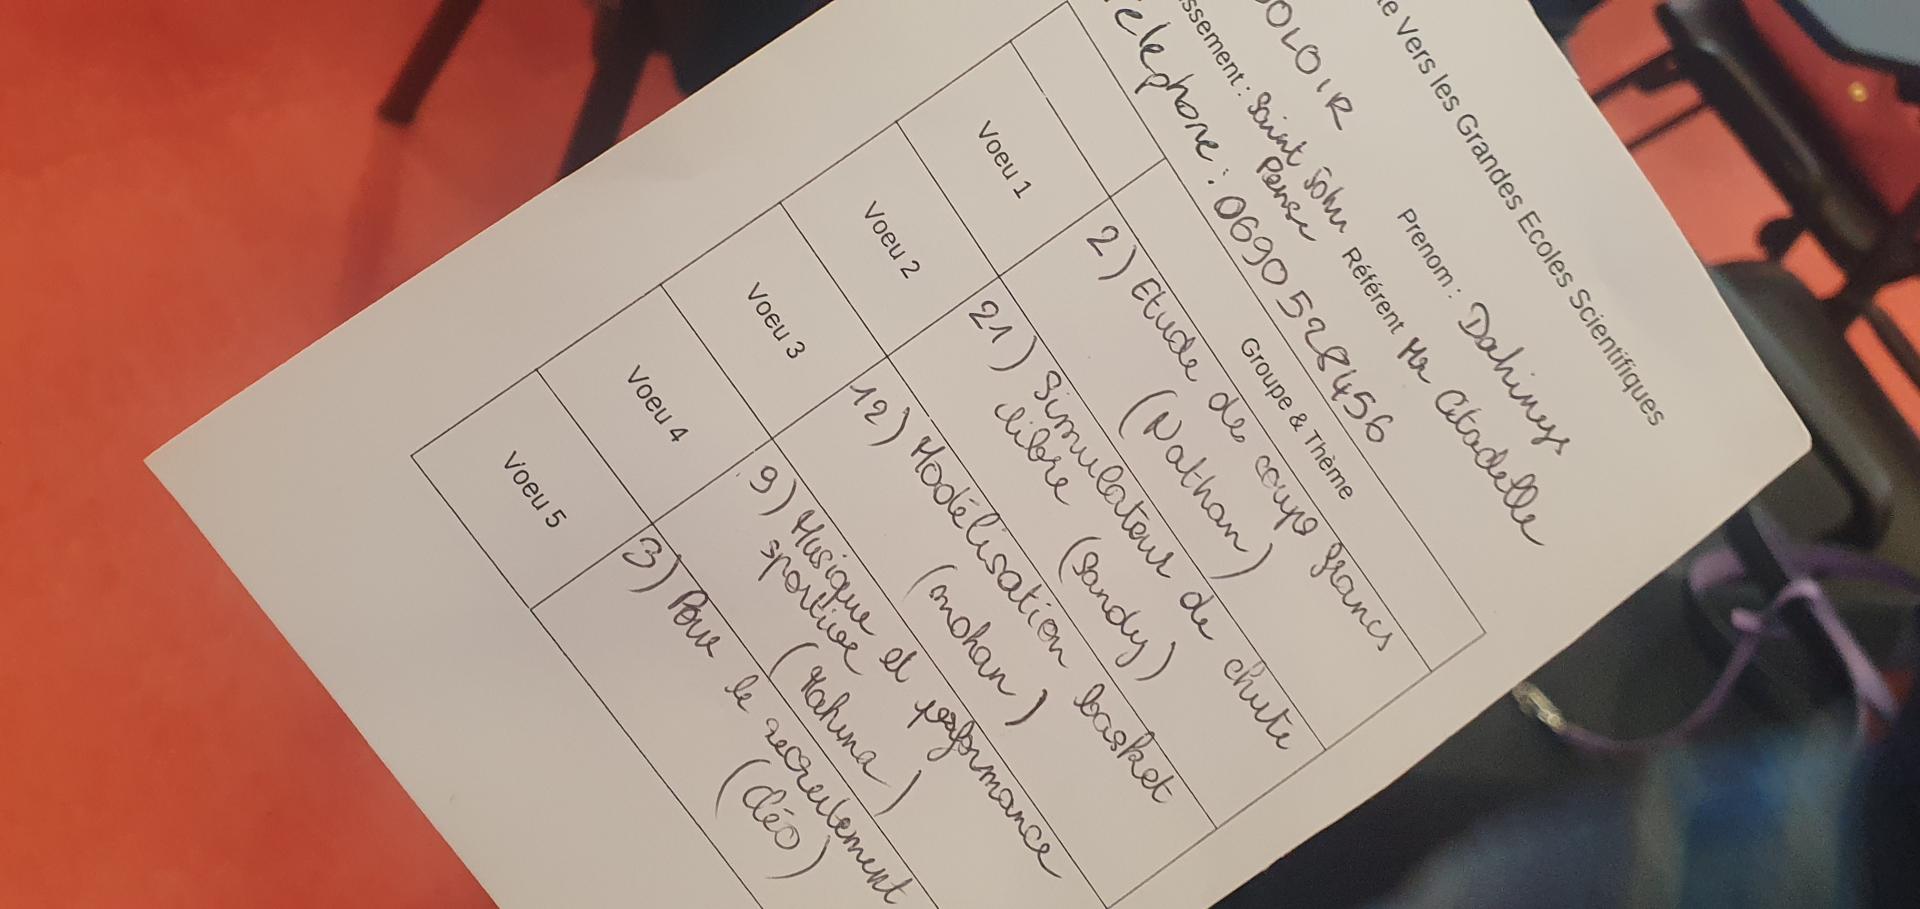 te Vers les Grandes Ecoles Scientifiques
OOLOIR Prenom : Dahinys
ssement : Saint John Perse Référent Mr Citadelle
Téléphone : 0690 528456
Groupe & Thème
Voeu 1 2) Etude de coups francs
(Nathan)
Voeu 2 21) Simulateur de chute
libre (Sandy)
Voeu 3 12) Modélisation basket
(mohan)
Voeu 4 9) Musique et performance
sportive (Mahina)
Voeu 5 3) Pour le recrutement
(Cléo)